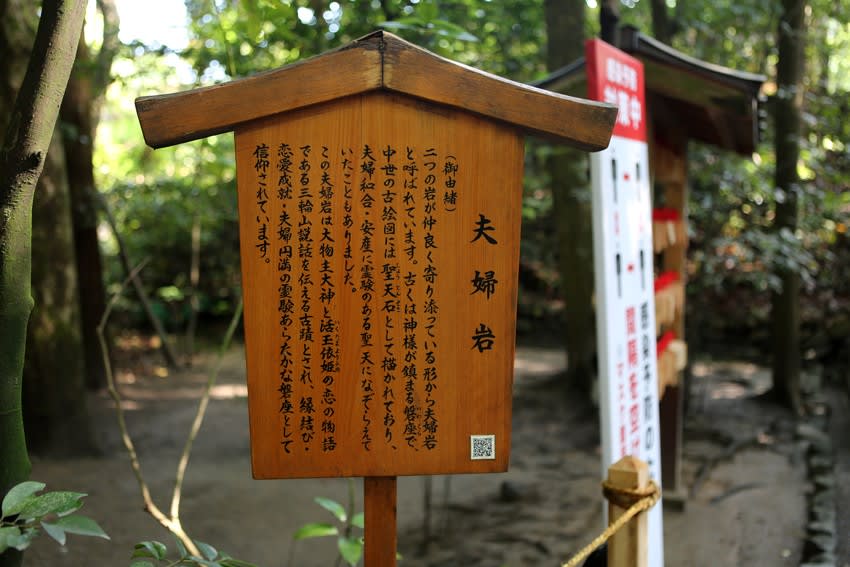 夫婦岩
（御由緒）
二つの岩が仲良く寄り添っている形から夫婦岩
と呼ばれています。古くは神様が鎮まる磐座で、
中世の古絵図には聖天石として描かれており、
夫婦和合・安産に霊験のある聖天になぞらえて
いたこともありました。
この夫婦岩は大物主大神と活玉依姫の恋の物語
である三輪山説話を伝える古蹟とされ、縁結び・
恋愛成就・夫婦円満の霊験あらたかな磐座として
信仰されています。
間隔を空け
感染予防の